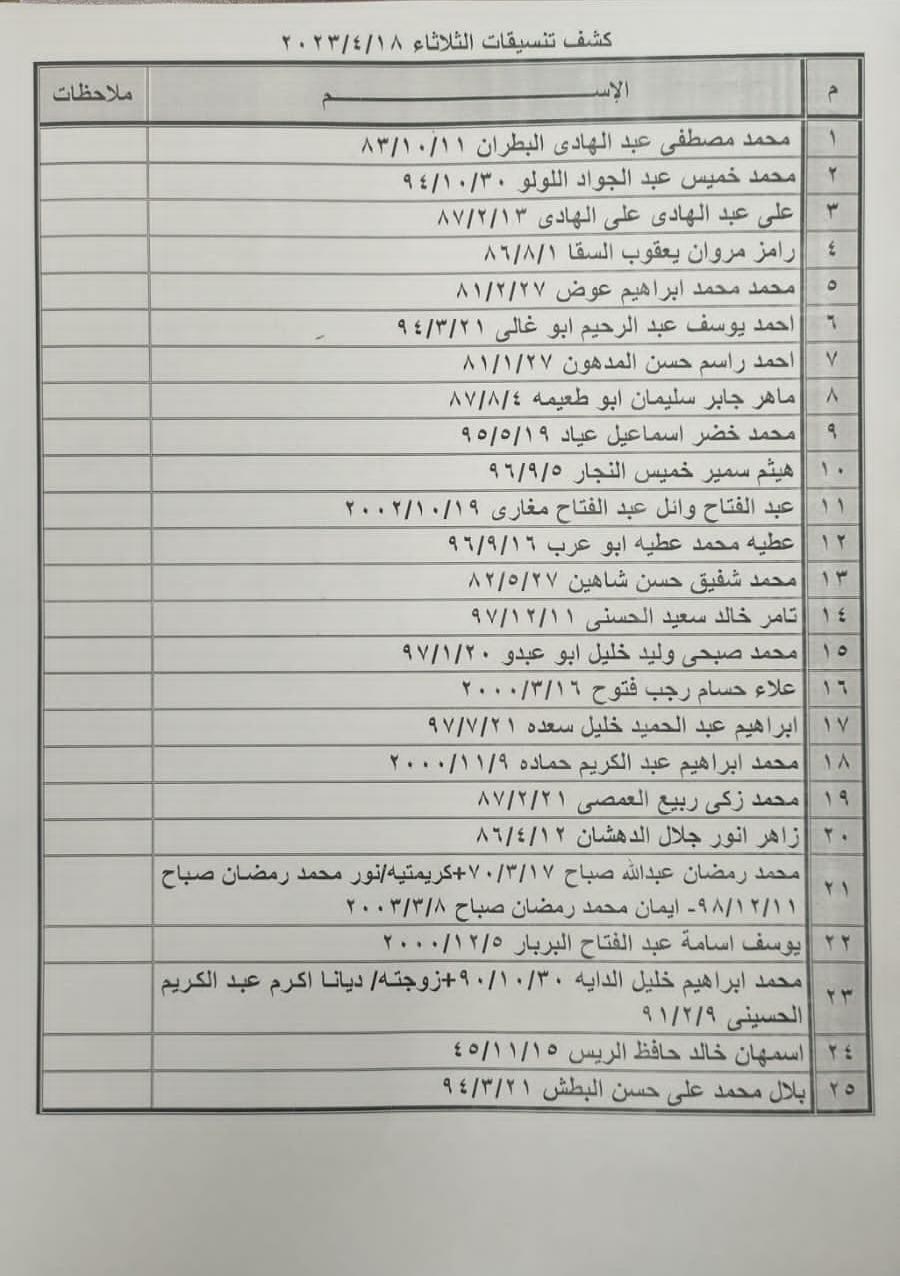 كشف تنسيقات الثلاثاء ٢٠٢٣/٤/١٨
م الإســـــم ملاحظات
١ محمد مصطفى عبد الهادى البطران ٨٣/١٠/١١
٢ محمد خميس عبد الجواد اللولو ٩٤/١٠/٣٠
٣ على عبد الهادى على الهادى ٨٧/٢/١٣
٤ رامز مروان يعقوب السقا ٨٦/٨/١
٥ محمد محمد ابراهيم عوض ٨١/٢/٢٧
٦ احمد يوسف عبد الرحيم ابو غالى ٩٤/٣/٢١
٧ احمد راسم حسن المدهون ٨١/١/٢٧
٨ ماهر جابر سليمان ابو طعيمه ٨٧/٨/٤
٩ محمد خضر اسماعيل عياد ٩٥/٥/١٩
١٠ هيثم سمير خميس النجار ٩٦/٩/٥
١١ عبد الفتاح وائل عبد الفتاح مغارى ٢٠٠٢/١٠/١٩
١٢ عطيه محمد عطيه ابو عرب ٩٦/٩/١٦
١٣ محمد شفيق حسن شاهين ٨٢/٥/٢٧
١٤ تامر خالد سعيد الحسنى ٩٧/١٢/١١
١٥ محمد صبحى وليد خليل ابو عبدو ٩٧/١/٢٠
١٦ علاء حسام رجب فتوح ٢٠٠٠/٣/١٦
١٧ ابراهيم عبد الحميد خليل سعده ٩٧/٧/٢١
١٨ محمد ابراهيم عبد الكريم حماده ٢٠٠٠/١١/٩
١٩ محمد زكى ربيع العمصى ٨٧/٢/٢١
٢٠ زاهر انور جلال الدهشان ٨٦/٤/١٢
٢١ محمد رمضان عبدالله صباح ٧٠/٣/١٧+كريمتيه/نور محمد رمضان صباح
٩٨/١٢/١١- ايمان محمد رمضان صباح ٢٠٠٣/٣/٨
٢٢ يوسف اسامة عبد الفتاح البربار ٢٠٠٠/١٢/٥
٢٣ محمد ابراهيم خليل الدايه ٩٠/١٠/٣٠+زوجته/ ديانا اكرم عبد الكريم
الحسينى ٩١/٢/٩
٢٤ اسمهان خالد حافظ الريس ٤٥/١١/١٥
٢٥ بلال محمد على حسن البطش ٩٤/٣/٢١